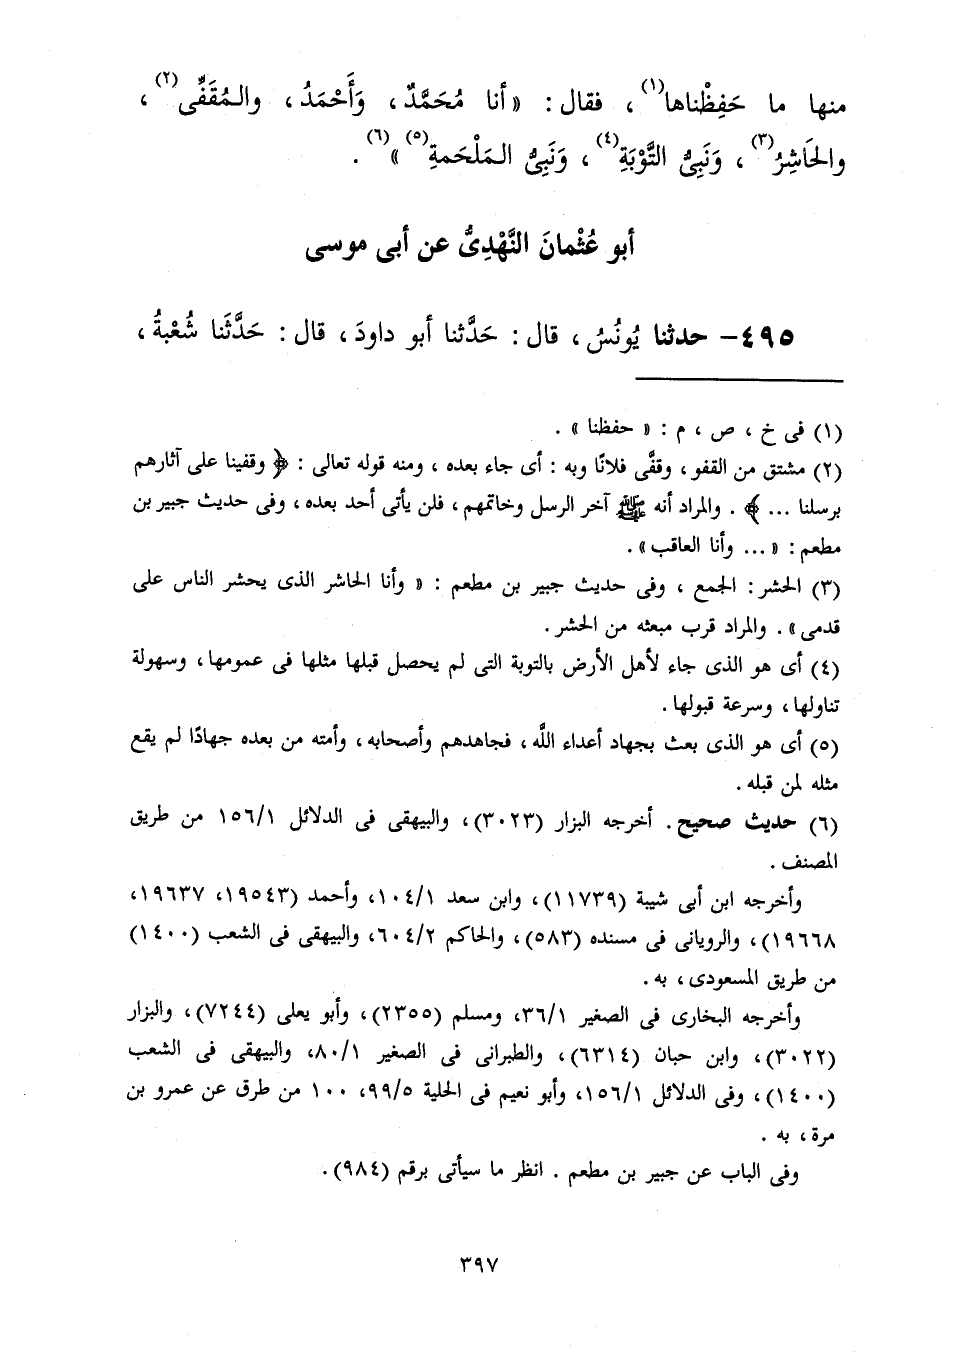 منها ما حَفِظْناها(١)، فقال: «أنا مُحَمَّدٌ، وَأَحْمَدُ، والمُقَفِّى(٢)،
والحَاشِرُ(٣)، وَنَبِىُّ التَّوْبَةِ(٤)، وَنَبِىُّ المَلْحَمةِ(٥)»(٦).
أبو عُثْمانَ النَّهْدِىُّ عن أبى موسى
٤٩٥- حدثنا يُونُسُ، قال: حَدَّثنا أبو داودَ، قال: حَدَّثَنا شُعْبةُ،
(١) فى خ، ص، م: «حفظنا».
(٢) مشتق من القفو، وقفَّى فلانًا وبه: أى جاء بعده، ومنه قوله تعالى: ﴿وقفينا على آثارهم
برسلنا ...﴾. والمراد أنه ﷺ آخر الرسل وخاتمهم، فلن يأتى أحد بعده، وفى حديث جبير بن
مطعم: «... وأنا العاقب».
(٣) الحشر: الجمع، وفى حديث جبير بن مطعم: «وأنا الحاشر الذى يحشر الناس على
قدمى». والمراد قرب مبعثه من الحشر.
(٤) أى هو الذى جاء لأهل الأرض بالتوبة التى لم يحصل قبلها مثلها فى عمومها، وسهولة
تناولها، وسرعة قبولها.
(٥) أى هو الذى بعث بجهاد أعداء اللَّه، فجاهدهم وأصحابه، وأمته من بعده جهادًا لم يقع
مثله لمن قبله.
(٦) حديث صحيح. أخرجه البزار (٣٠٢٣)، والبيهقى فى الدلائل ١/١٥٦ من طريق
المصنف.
وأخرجه ابن أبى شيبة (١١٧٣٩)، وابن سعد ١/١٠٤، وأحمد (١٩٥٤٣، ١٩٦٣٧،
١٩٦٦٨)، والرويانى فى مسنده (٥٨٣)، والحاكم ٢/٦٠٤، والبيهقى فى الشعب (١٤٠٠)
من طريق المسعودى، به.
وأخرجه البخارى فى الصغير ١/٣٦، ومسلم (٢٣٥٥)، وأبو يعلى (٧٢٤٤)، والبزار
(٣٠٢٢)، وابن حبان (٦٣١٤)، والطبرانى فى الصغير ١/٨٠، والبيهقى فى الشعب
(١٤٠٠)، وفى الدلائل ١/١٥٦، وأبو نعيم فى الحلية ٥/٩٩، ١٠٠ من طرق عن عمرو بن
مرة، به.
وفى الباب عن جبير بن مطعم. انظر ما سيأتى برقم (٩٨٤).
٣٩٧